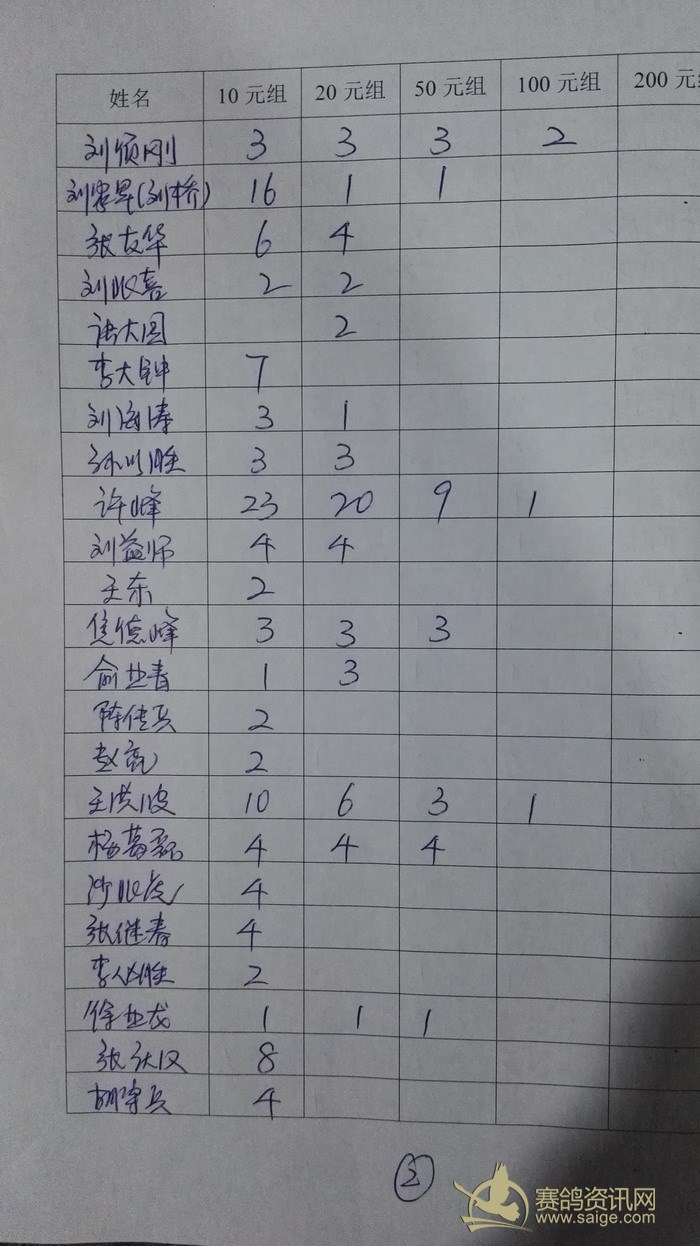 姓名 10元组 20元组 50元组 100元组 200元
刘颀刚 3 3 3 2
刘寒星(刘桥) 16 1 1
张友华 6 4
刘收喜 2 2
大圆 2
李大钟 7
刘海涛 3 1
孙川胜 3 3
许峰 23 20 9 1
刘益师 4 4
王东 2
焦德峰 3 3 3
俞业春 1 3
陈传兵 2
赵亮 2
王洪波 10 6 3 1
杨 4 4 4
沙 4
张继春 4
李 胜 2
徐业龙 1 1 1
张 汉 8
胡 兵 4
②
赛鸽资讯网
www.saige.com